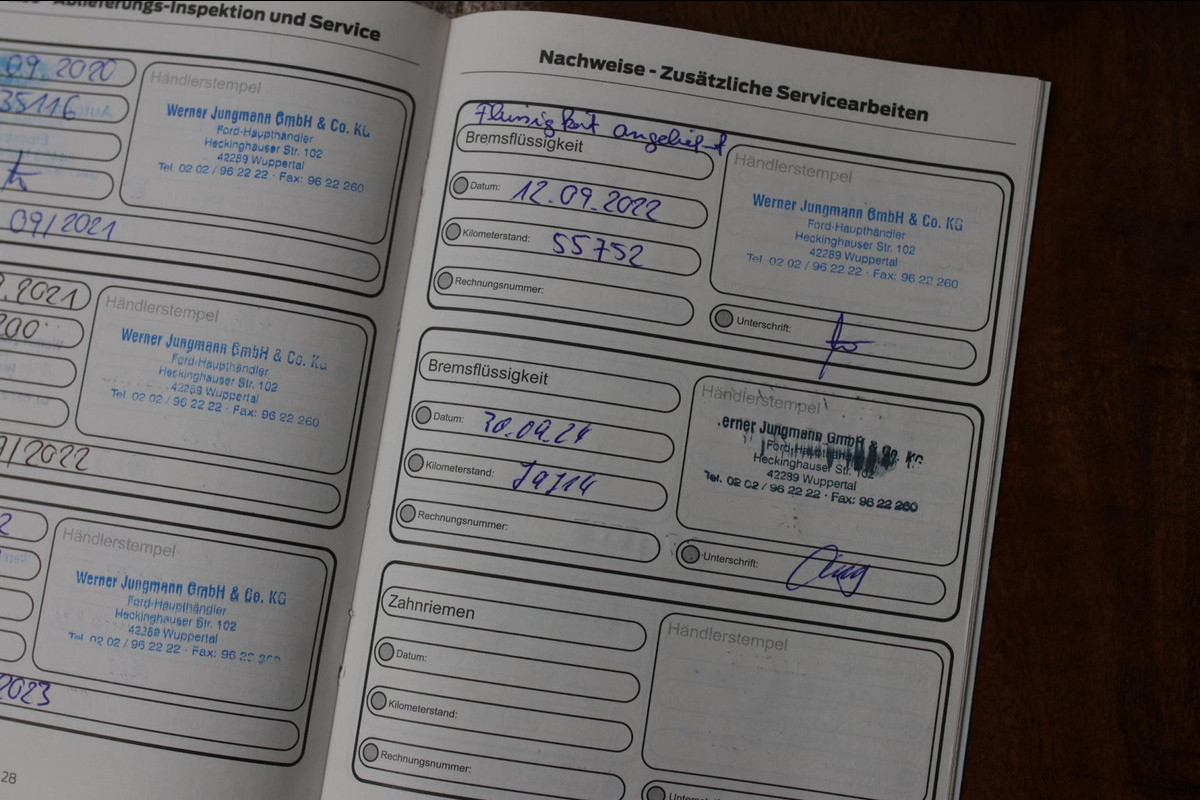 Ablieferungs-Inspektion und Service
09.2020
35116
Händlerstempel
Werner Jungmann GmbH & Co. KG
Ford-Haupthändler
Heckinghauser Str. 102
42289 Wuppertal
Tel. 02 02 / 96 22 22 · Fax: 96 22 260
09/2021
.2021
200
Händlerstempel
Werner Jungmann GmbH & Co. KG
Ford-Haupthändler
Heckinghauser Str. 102
42289 Wuppertal
Tel. 02 02 / 96 22 22 · Fax: 96 22 260
/2022
2
Händlerstempel
Werner Jungmann GmbH & Co. KG
Ford-Haupthändler
Heckinghauser Str. 102
42289 Wuppertal
Tel. 02 02 / 96 22 22 · Fax: 96 22
2023
28
Nachweise - Zusätzliche Servicearbeiten
Bremsflüssigkeit
Datum: 12.09.2022
Kilometerstand: 55752
Rechnungsnummer:
Händlerstempel
Werner Jungmann GmbH & Co. KG
Ford-Haupthändler
Heckinghauser Str. 102
42289 Wuppertal
Tel. 02 02 / 96 22 22 · Fax: 96 22 260
Unterschrift:
Bremsflüssigkeit
Datum: 30.09.24
Kilometerstand:
Rechnungsnummer:
Händlerstempel
erner Jungmann GmbH & Co. KG
Heckinghauser Str. 102
42289 Wuppertal
Tel. 02 02 / 96 22 22 · Fax: 96 22 260
Unterschrift:
Zahnriemen
Datum:
Kilometerstand:
Rechnungsnummer:
Händlerstempel